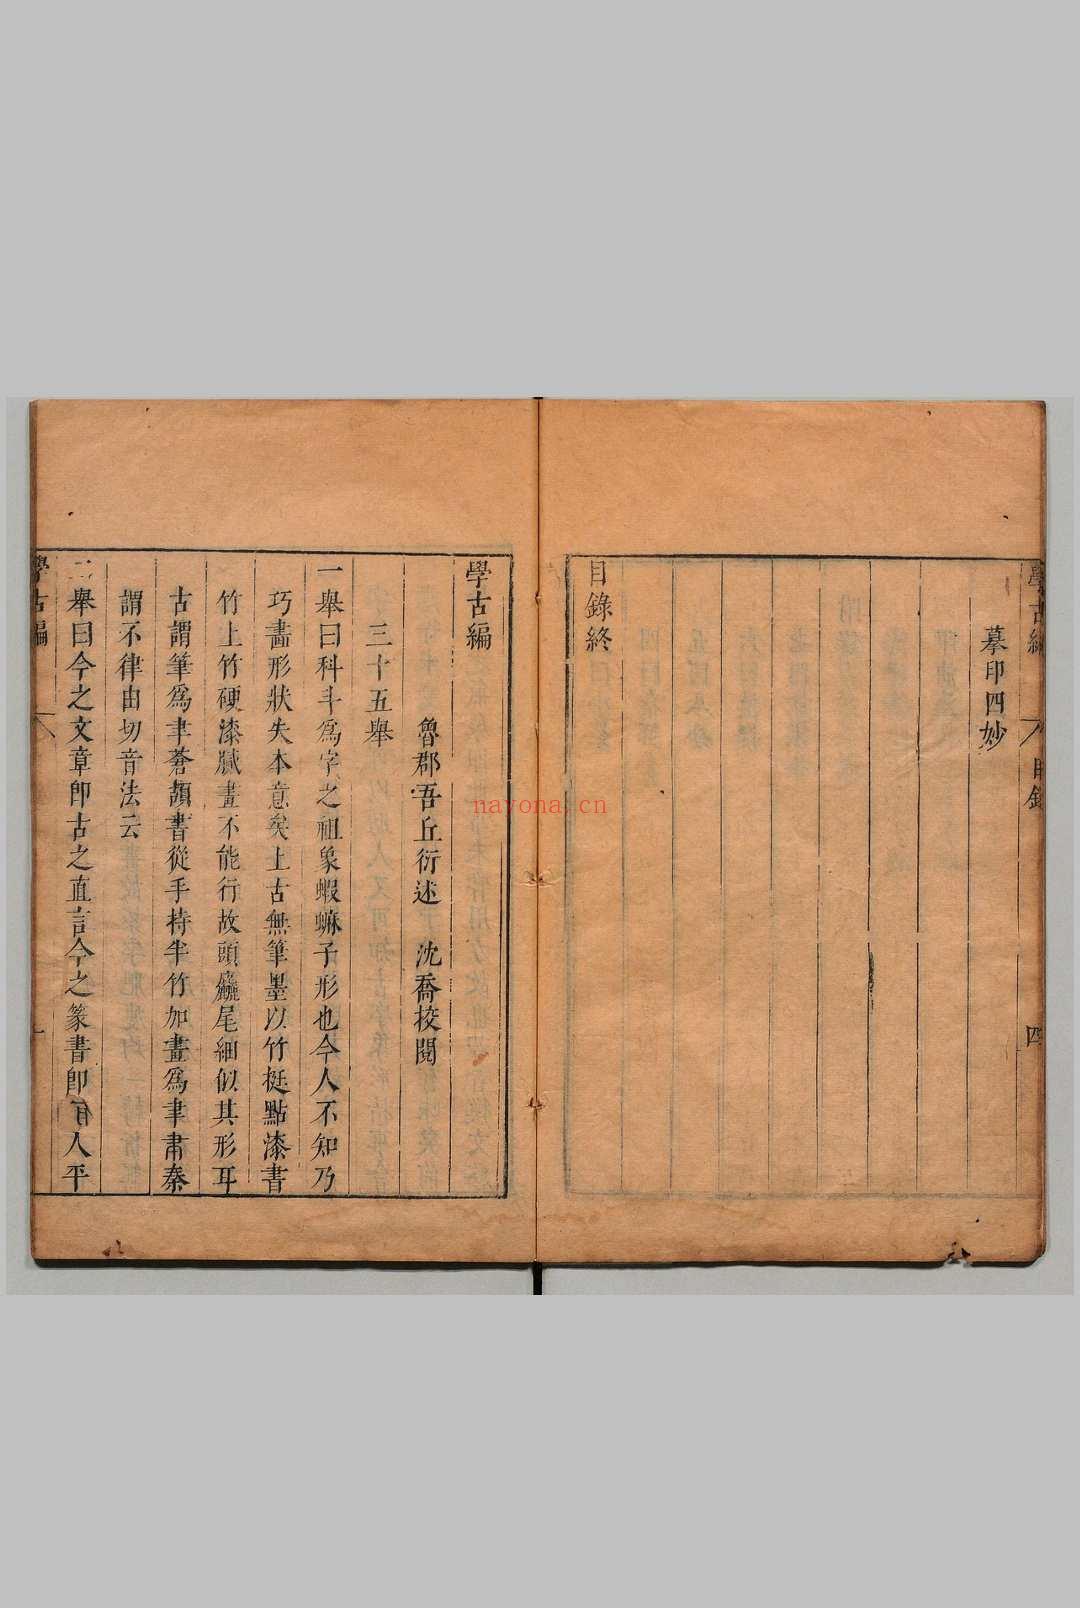 摹印四妙
目錄終
學古編
魯郡吾丘衍述　沈喬挍閱
三十五舉
一舉曰科斗爲字之祖象蝦蟆子形也今人不知乃
巧畵形狀失本意矣上古無筆墨以竹梃點漆書
竹上竹硬漆膩畫不能行故頭麤尾細似其形耳
古謂筆爲聿蒼頡書從手持半竹加畫爲聿肅秦
謂不律由切音法云
二舉曰今之文章即古之直言今之篆書即有人平
學古編
nayona.cn
學古編
目錄
四